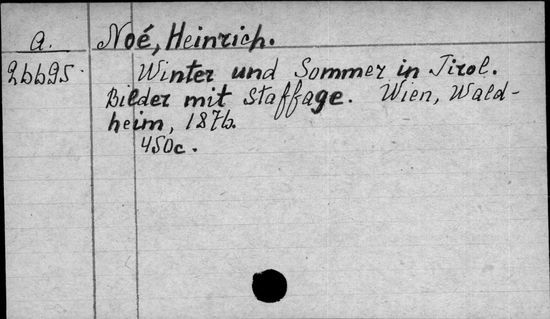 a. Noé, Heinrich.
26695. Winter und Sommer in Tirol.
Bilder mit Staffage. Wien, Wald-
heim, 1876.
450c.